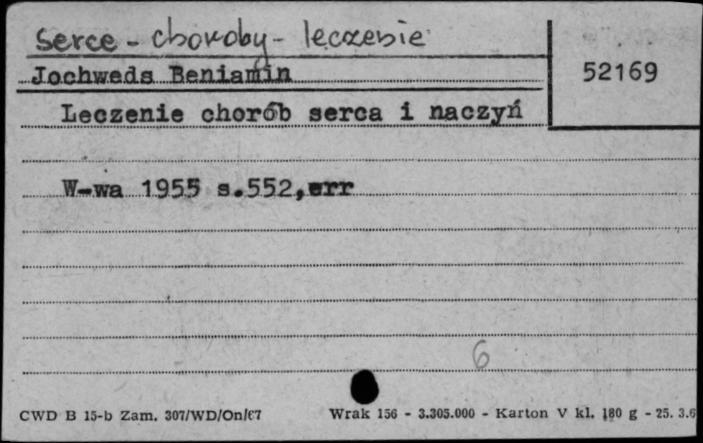 Serce - choroby - leczenie
Jochweds Beniamin
52169
Leczenie chorób serca i naczyń
W-wa 1955 s.552,err
6
CWD B 15-b Zam. 307/WD/On/67 Wrak 156 - 3.305.000 - Karton V kl. 180 g - 25. 3.6